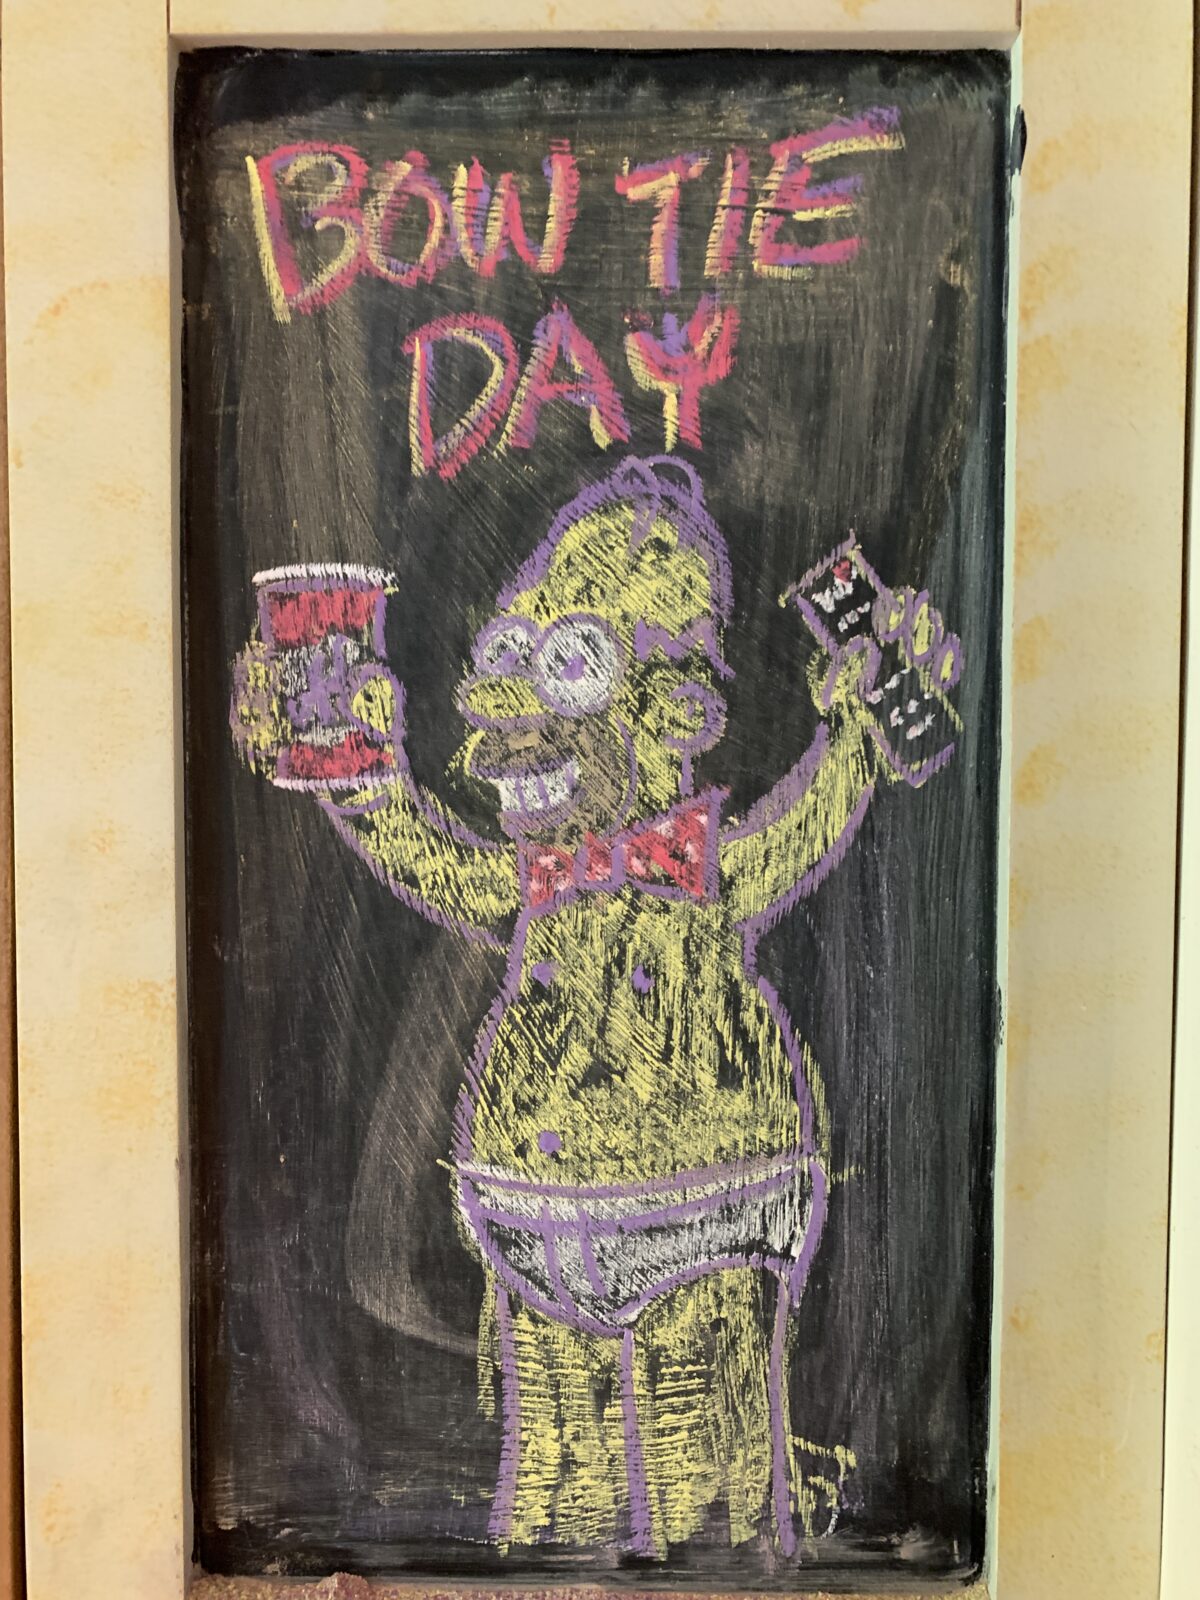 BOW TIE
DAY